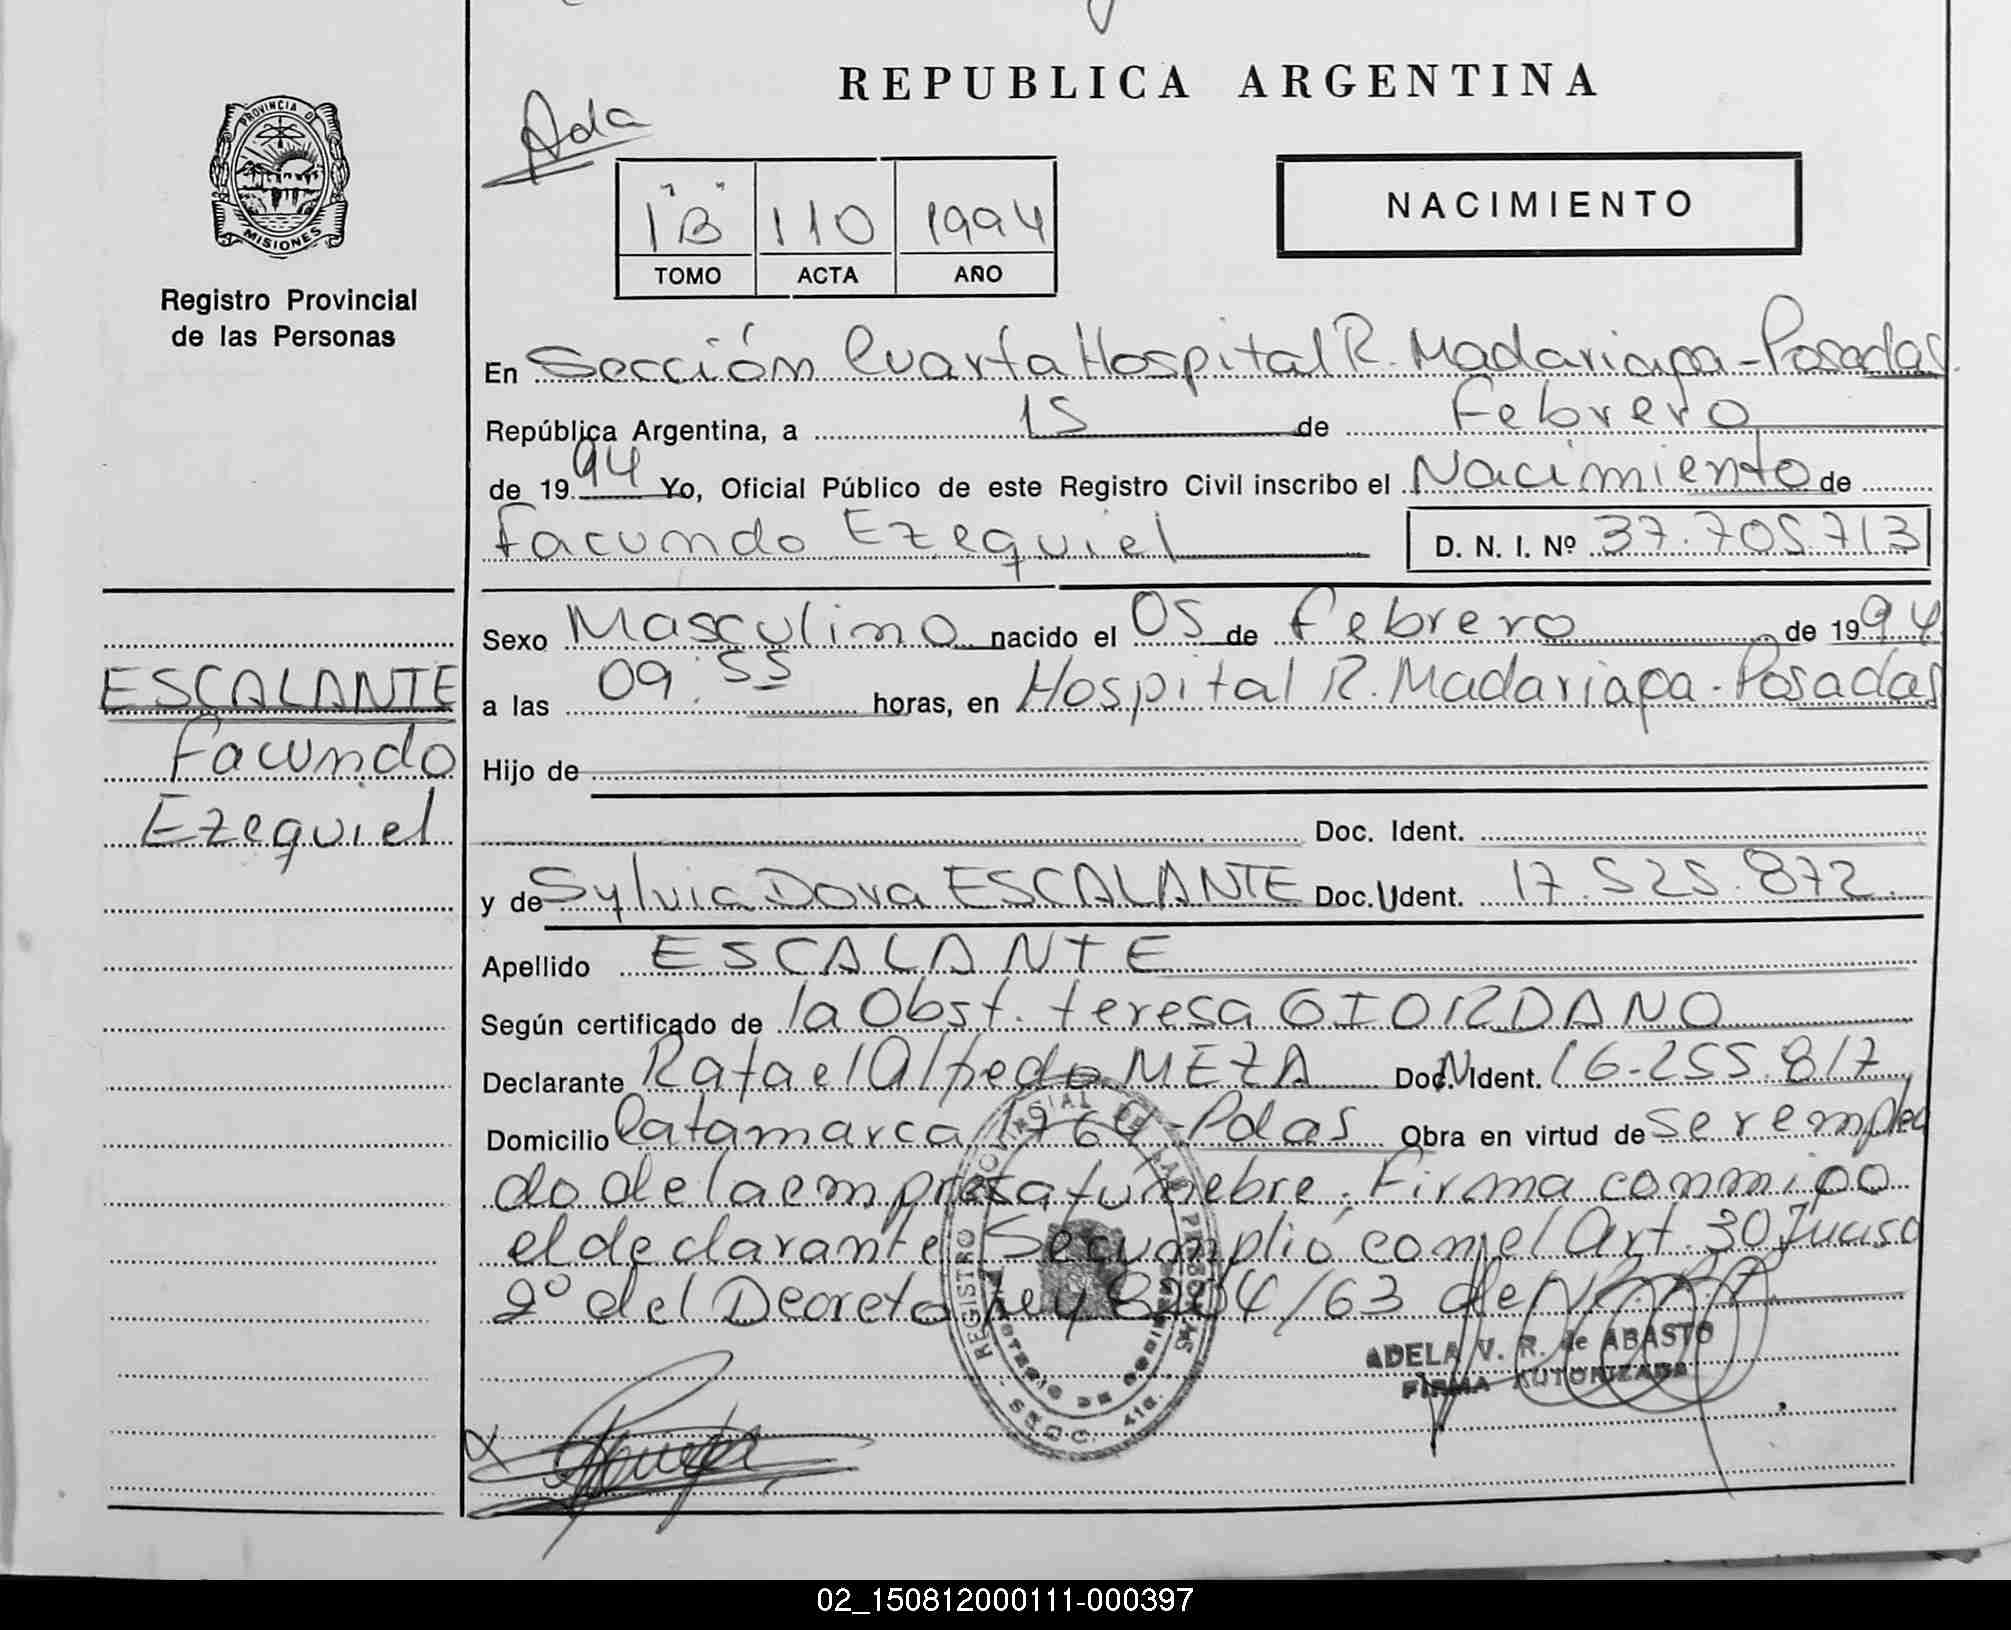 REPUBLICA ARGENTINA
Ada
PROVINCIA DE
MISIONES
Registro Provincial
de las Personas
1 "B" 110 1994
TOMO ACTA AÑO
NACIMIENTO
En Sección Cuarta Hospital R. Madariaga - Posadas
República Argentina, a 15 de Febrero
de 1994 Yo, Oficial Público de este Registro Civil inscribo el Nacimiento de
Facundo Ezequiel D. N. I. Nº 37.705.713
Sexo Masculino nacido el 05 de Febrero de 1994
a las 09:55 horas, en Hospital R. Madariaga - Posadas
Hijo de
Doc. Ident.
y de Sylvia Dora ESCALANTE Doc. Udent. 17.525.872.
Apellido ESCALANTE
Según certificado de la Obst. Teresa GIORDANO
Declarante Rafael Alfredo MEZA Doc. N Ident. 16.255.817
Domicilio Catamarca 1764 - Pdas Obra en virtud de ser emplea
do de la empresa fúnebre. Firma conmigo
el declarante Se cumplió con el Art. 30 Inciso
2º del Decreto Ley 8204/63
ESCALANTE
Facundo
Ezequiel
REGISTRO PROVINCIAL DE LAS PERSONAS
SECC. 4ta.
ADELA V. R. de ABASTO
FIRMA AUTORIZADA
02_150812000111-000397